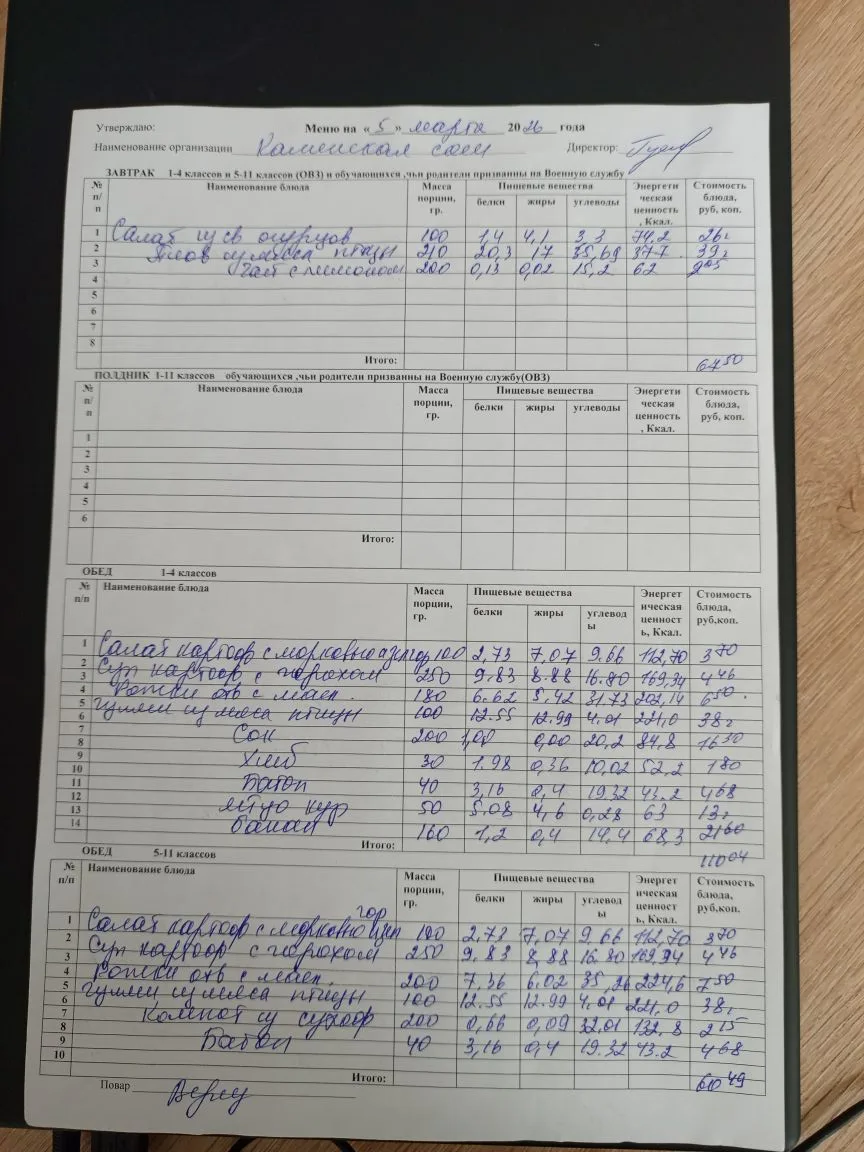 Утверждаю: Меню на « 5 » марта 2026 года
Наименование организации Каменская сош Директор:
ЗАВТРАК 1-4 классов и 5-11 классов (ОВЗ) и обучающихся ,чьи родители призванны на Военную службу
№ п/п Наименование блюда Масса порции, гр. Пищевые вещества Энергети ческая ценность , Ккал. Стоимость блюда, руб, коп.
белки жиры углеводы
1 Салат из св огурцов 100 1,4 4,1 3,3 74,2 26
2 Плов из мяса птицы 210 20,3 17 35,69 377 39
3 Чай с лимоном 200 0,13 0,02 15,2 62
4
5
6
7
8
Итого: 67 50
ПОЛДНИК 1-11 классов обучающихся ,чьи родители призванны на Военную службу(ОВЗ)
№ п/п Наименование блюда Масса порции, гр. Пищевые вещества Энергети ческая ценность , Ккал. Стоимость блюда, руб, коп.
белки жиры углеводы
1
2
3
4
5
6
Итого:
ОБЕД 1-4 классов
№ п/п Наименование блюда Масса порции, гр. Пищевые вещества Энергет ическая ценност ь, Ккал. Стоимость блюда, руб,коп.
белки жиры углевод ы
1 Салат картоф с морковью гор 100 2,73 7,07 9.66 112,70 3 70
2 Суп картоф с горохом 250 9.83 8.88 16.80 169,34 4 46
3
4 Рожки отв с масл. 180 6.62 5,42 31.73 202,14 6 50
5 гуляш из мяса птицы 100 12.55 12.99 4.01 221,0 38
6
7 Сок 200 1,00 0,00 20,2 84.8 16 30
8
9 Хлеб 30 1.98 0,36 10,02 52,2 1 80
10
11 Батон 40 3,16 0,4 19.32 43.2 4 68
12 яйцо кур 50 5.08 4,6 0,28 63 13
13
14 банан 160 1,2 0,4 14,4 68,3 21 60
Итого: 110 04
ОБЕД 5-11 классов
№ п/п Наименование блюда Масса порции, гр. Пищевые вещества Энергет ическая ценност ь, Ккал. Стоимость блюда, руб,коп.
белки жиры углевод ы
1 Салат картоф с морковью гор 100 2,73 7,07 9.66 112,70 3 70
2 Суп картоф с горохом 250 9.83 8,88 16.80 169,34 4 46
3
4 Рожки отв с масл. 200 7,36 6.02 35,26 224,6 7 50
5 гуляш из мяса птицы 100 12.55 12.99 4.01 221,0 38
6
7 Компот из сухофр 200 0,66 0,09 32,01 132,8 2 15
8
9 Батон 40 3,16 0,4 19.32 43.2 4 68
10
Итого: 60 49
Повар